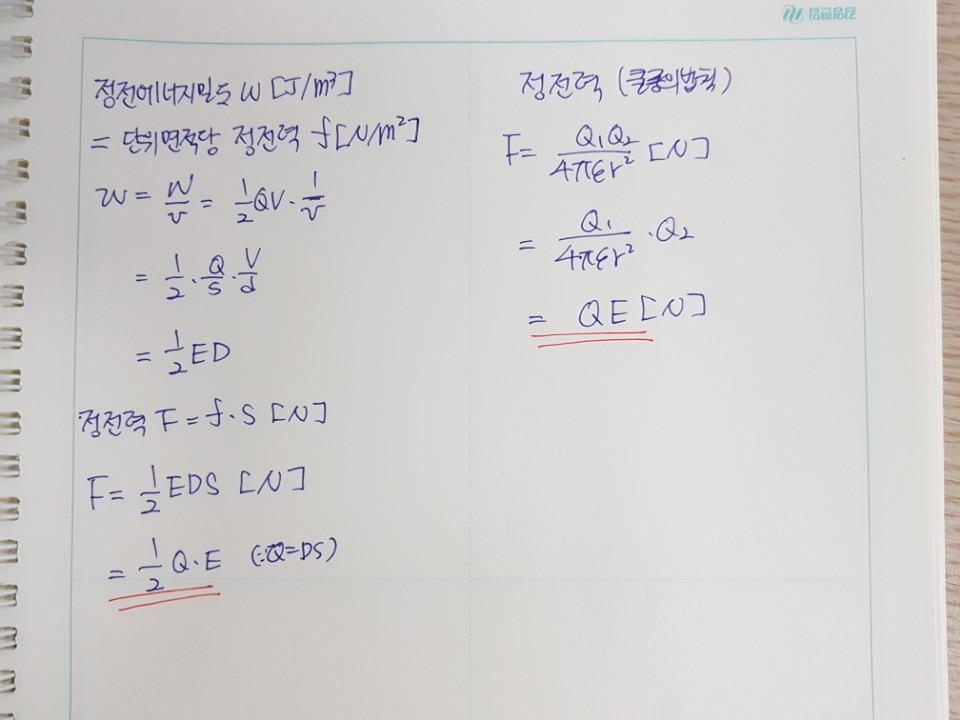 정전에너지밀도 w [J/m³]
= 단위면적당 정전력 f [N/m²]
w = W/v = 1/2 QV · 1/v
= 1/2 · Q/S · V/d
= 1/2 ED
정전력 F = f · S [N]
F = 1/2 EDS [N]
= 1/2 Q · E (∵Q=DS)
정전력 (쿨롱의법칙)
F = Q₁Q₂/4πεr² [N]
= Q₁/4πεr² · Q₂
= QE [N]